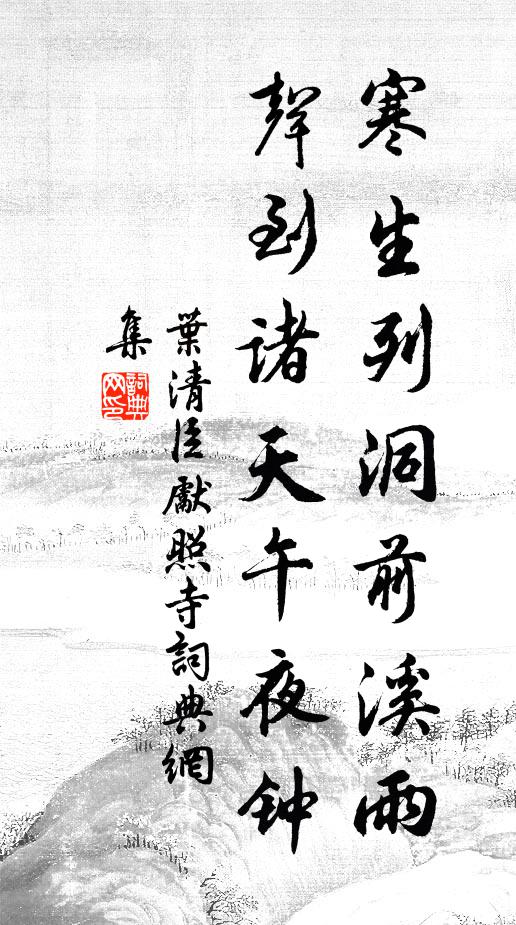 寒生列洞前溪雨
聲到諸天午夜钟
葉清臣獻照寺詞典網
集
詞典
网印